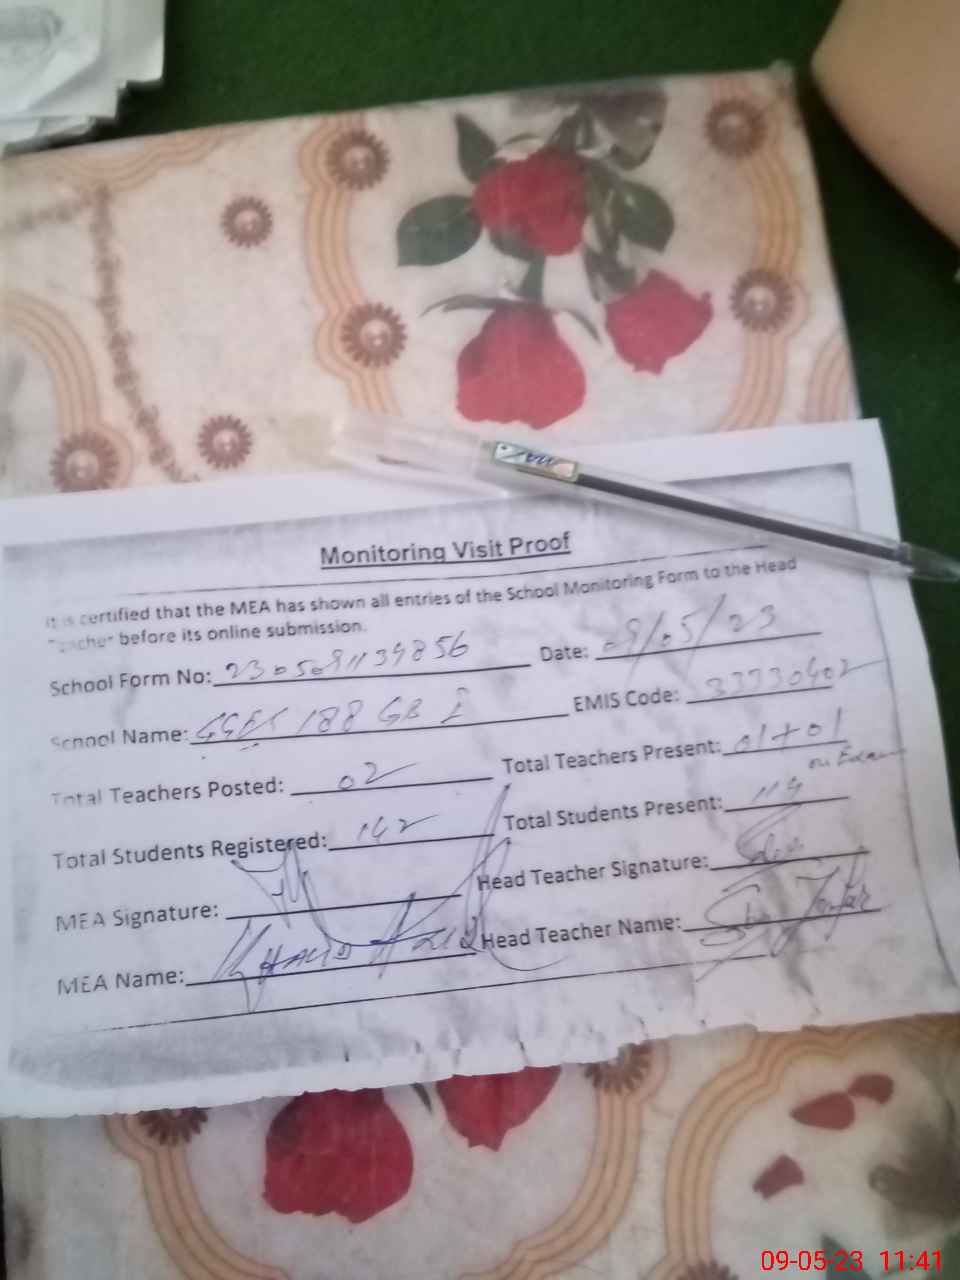 Monitoring Visit Proof
It is certified that the MEA has shown all entries of the School Monitoring Form to the Head
Teacher before its online submission.
School Form No: 2305091134856 Date: 09/05/23
School Name: 188 GB EMIS Code: 33330402
Total Teachers Posted: 02 Total Teachers Present: 01+01
on Exam
Total Students Registered: 142 Total Students Present: 114
MEA Signature: Head Teacher Signature:
MEA Name: KHALID Head Teacher Name:
09-05-23 11:41